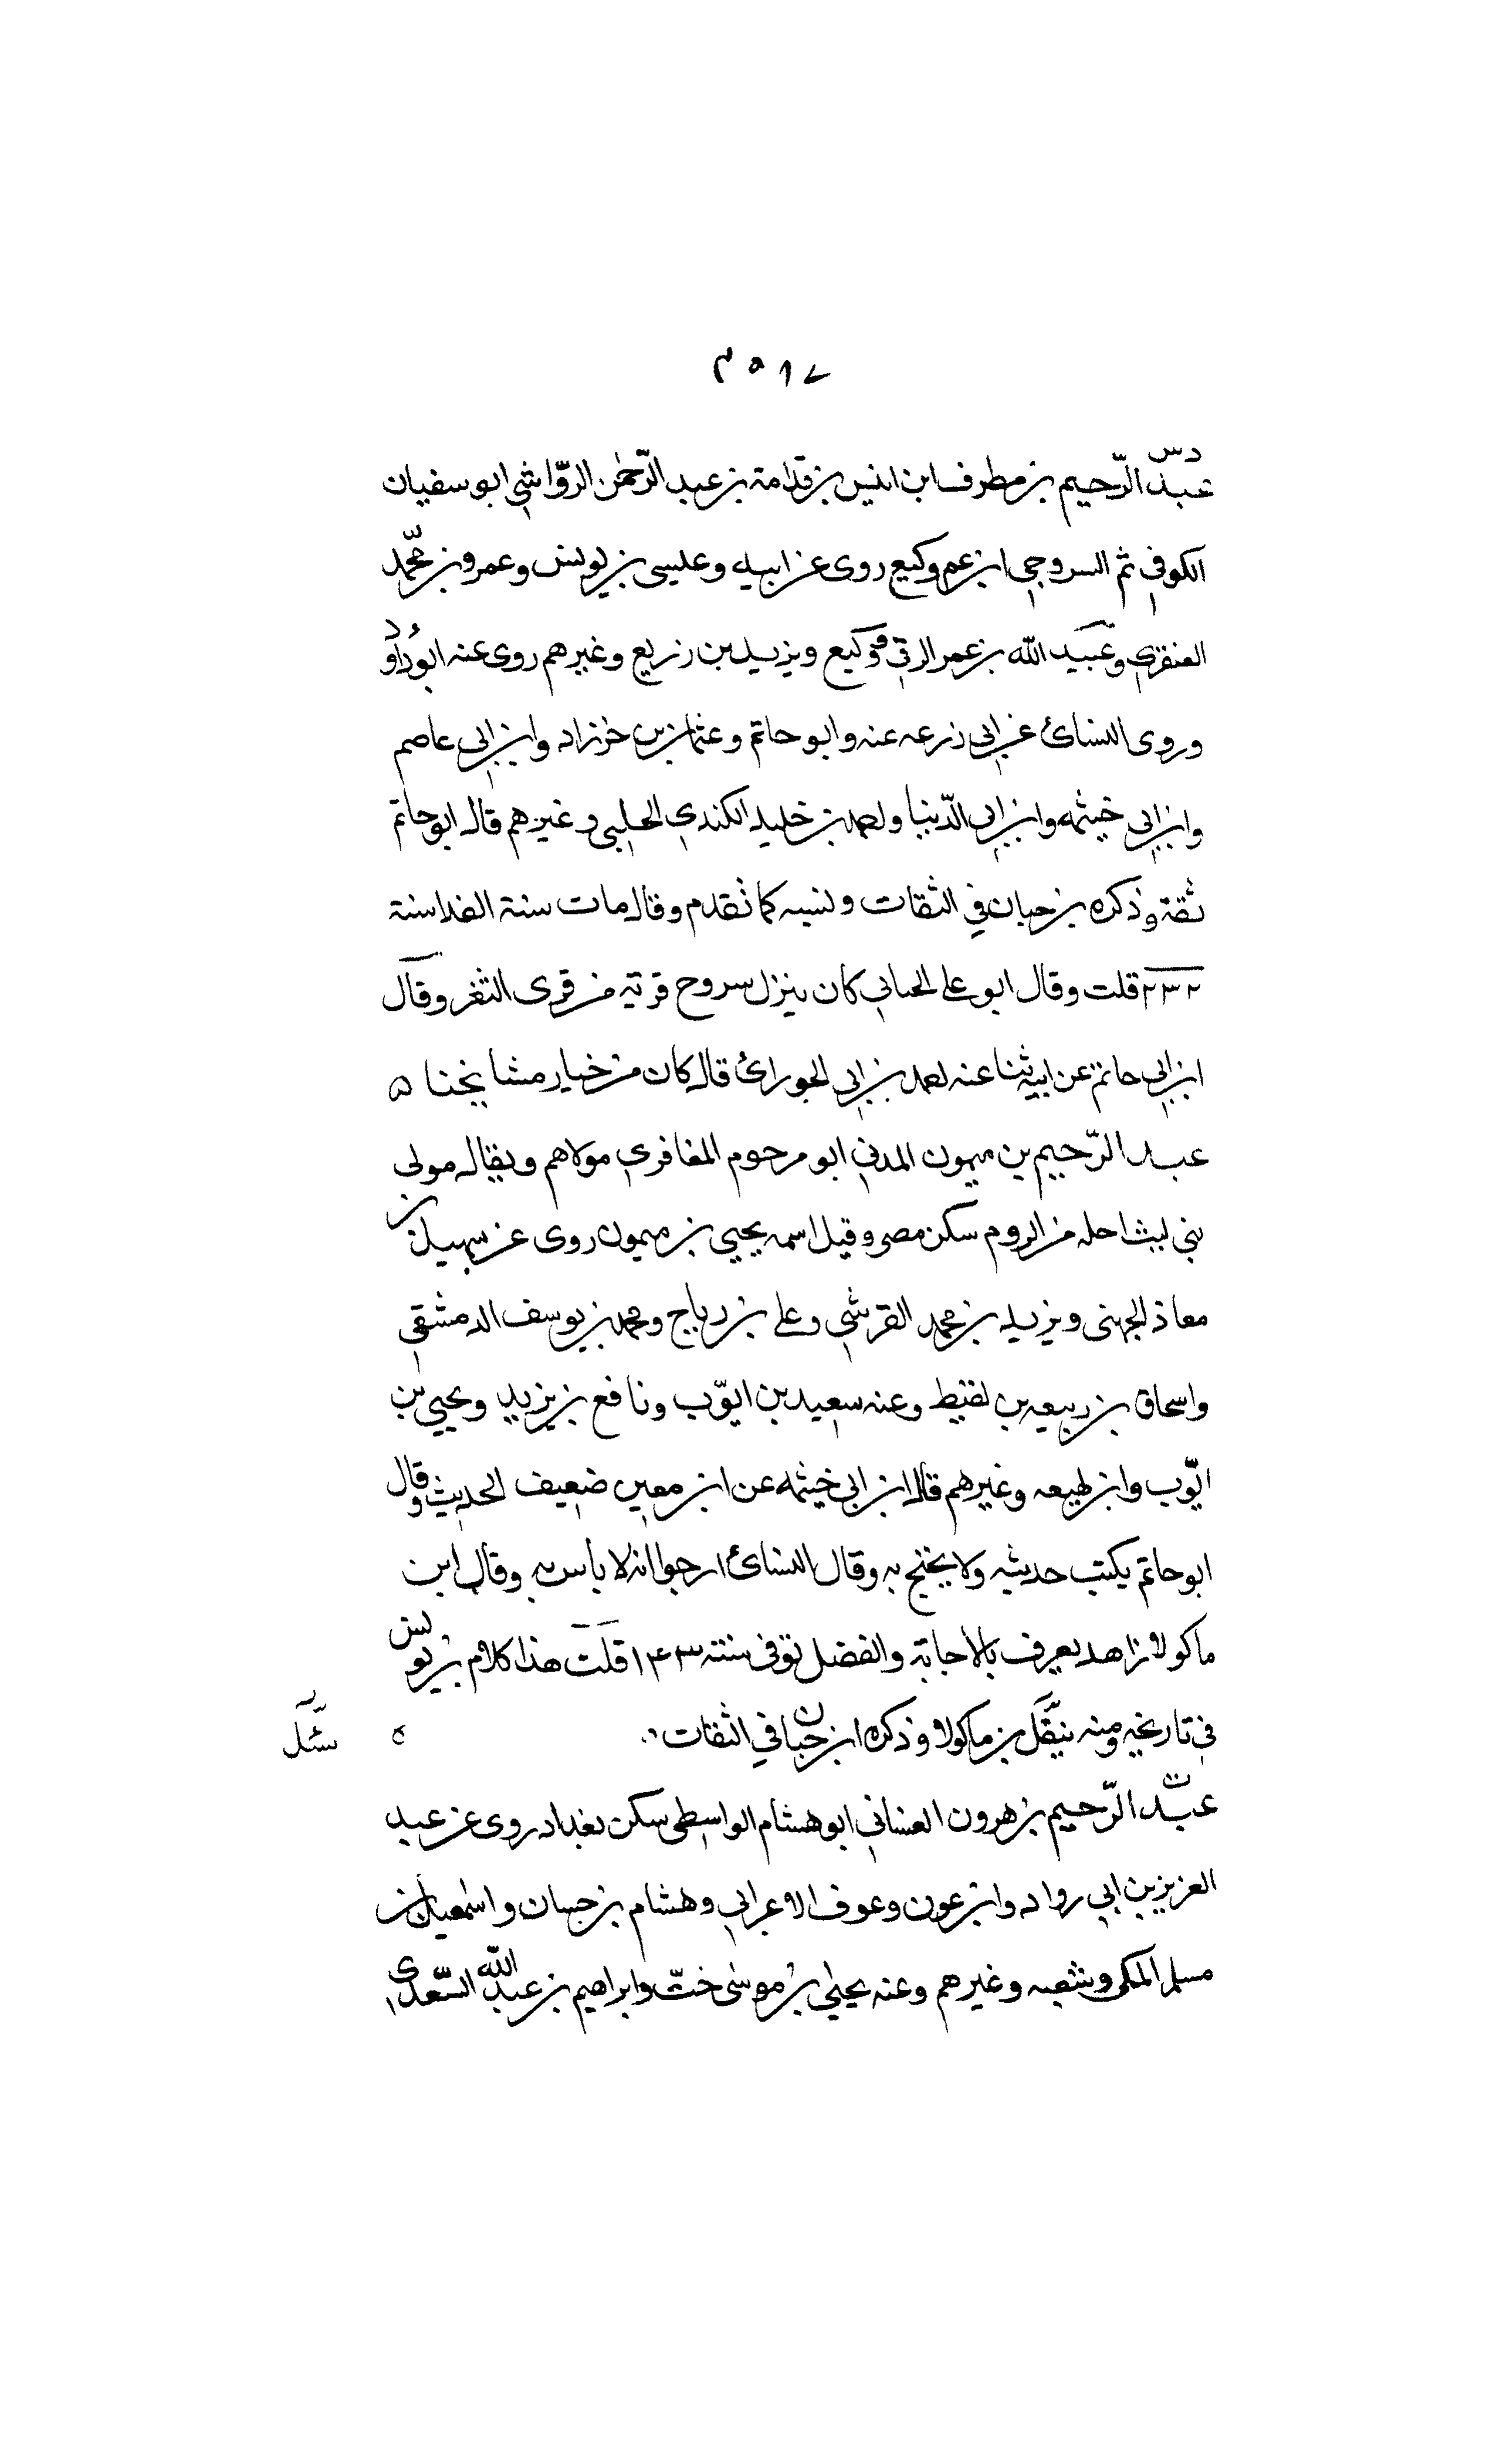 ٣٥١٧
د س
عبد الرّحيم بن مطرف ابن انيس بن قدامة بن عبد الرّحمٰن الروّاشي ابو سفيان
الكوفي ثم السروجي ابن عم وكيع روى عن ابيه وعيسى بن يونس وعمرو بن محمّد
العنقزي وعبيد الله بن عمر الرقي ووكيع ويزيد بن زريع وغيرهم روى عنه ابو داؤد
وروى النسائ عن ابي زرعه عنه وابو حاتم وعثمان بن خرزاد وابن ابي عاصم
وابن ابي خيثمه وابن ابي الدّنيا واحمد بن خليد الكندي الحلبي وغيرهم قال ابو حاتم
ثقة وذكره بن حبان في الثقات ونسبه كما تقدم وقال مات سنة
٢٣٢ قلت وقال ابو علي الجياني كان ينزل سروح قرية من قرى الثغر وقال
ابن ابي حاتم عن ابيه ثنا عنه احمد بن ابي الحورائ قال كان من خيار مشايخنا ٥
عبد الرّحيم بن ميمون المدني ابو مرحوم المغافري مولاهم ويقال مولى
بني ليث احله من الروم سكن مصر وقيل اسمه يحيي بن ميمون روى عن سهيل بن
معاذ الجهنى ويزيد بن محمد القرشي وعلي بن رباح ومحمد بن يوسف الدمشقي
واسحاق بن ربيعه بن لقيط وعنه سعيد بن ايوّب ونافع بن يزيد ويحيي بن
ايّوب وابن لهيعه وغيرهم قال ابن ابي خيثمه عن ابن معين ضعيف الحديث وقال
ابو حاتم يكتب حديثه ولا يحتج به وقال النسائ ارجوا انه لا بأس به وقال ابن
ماكولا زاهد يعرف بالاجابة والفضل توفى سنة ١٤٣ قلت هذا كلام بن يونس
في تاريخه ومنه ينقل بن ماكولا وذكره ابن حبان في الثقات ٥
ت
عبد الرّحيم بن هرون الغساني ابو هشام الواسطى سكن بغداد روى عن عبد
العزيز بن ابي رواد وابن عون وعوف الاعرابي وهشام بن حسان واسمعيل بن
مسلم المكي وشعبه وغيرهم وعنه يحيٰي بن موسٰى ختّ وابراهيم بن عبد الله السّعدي